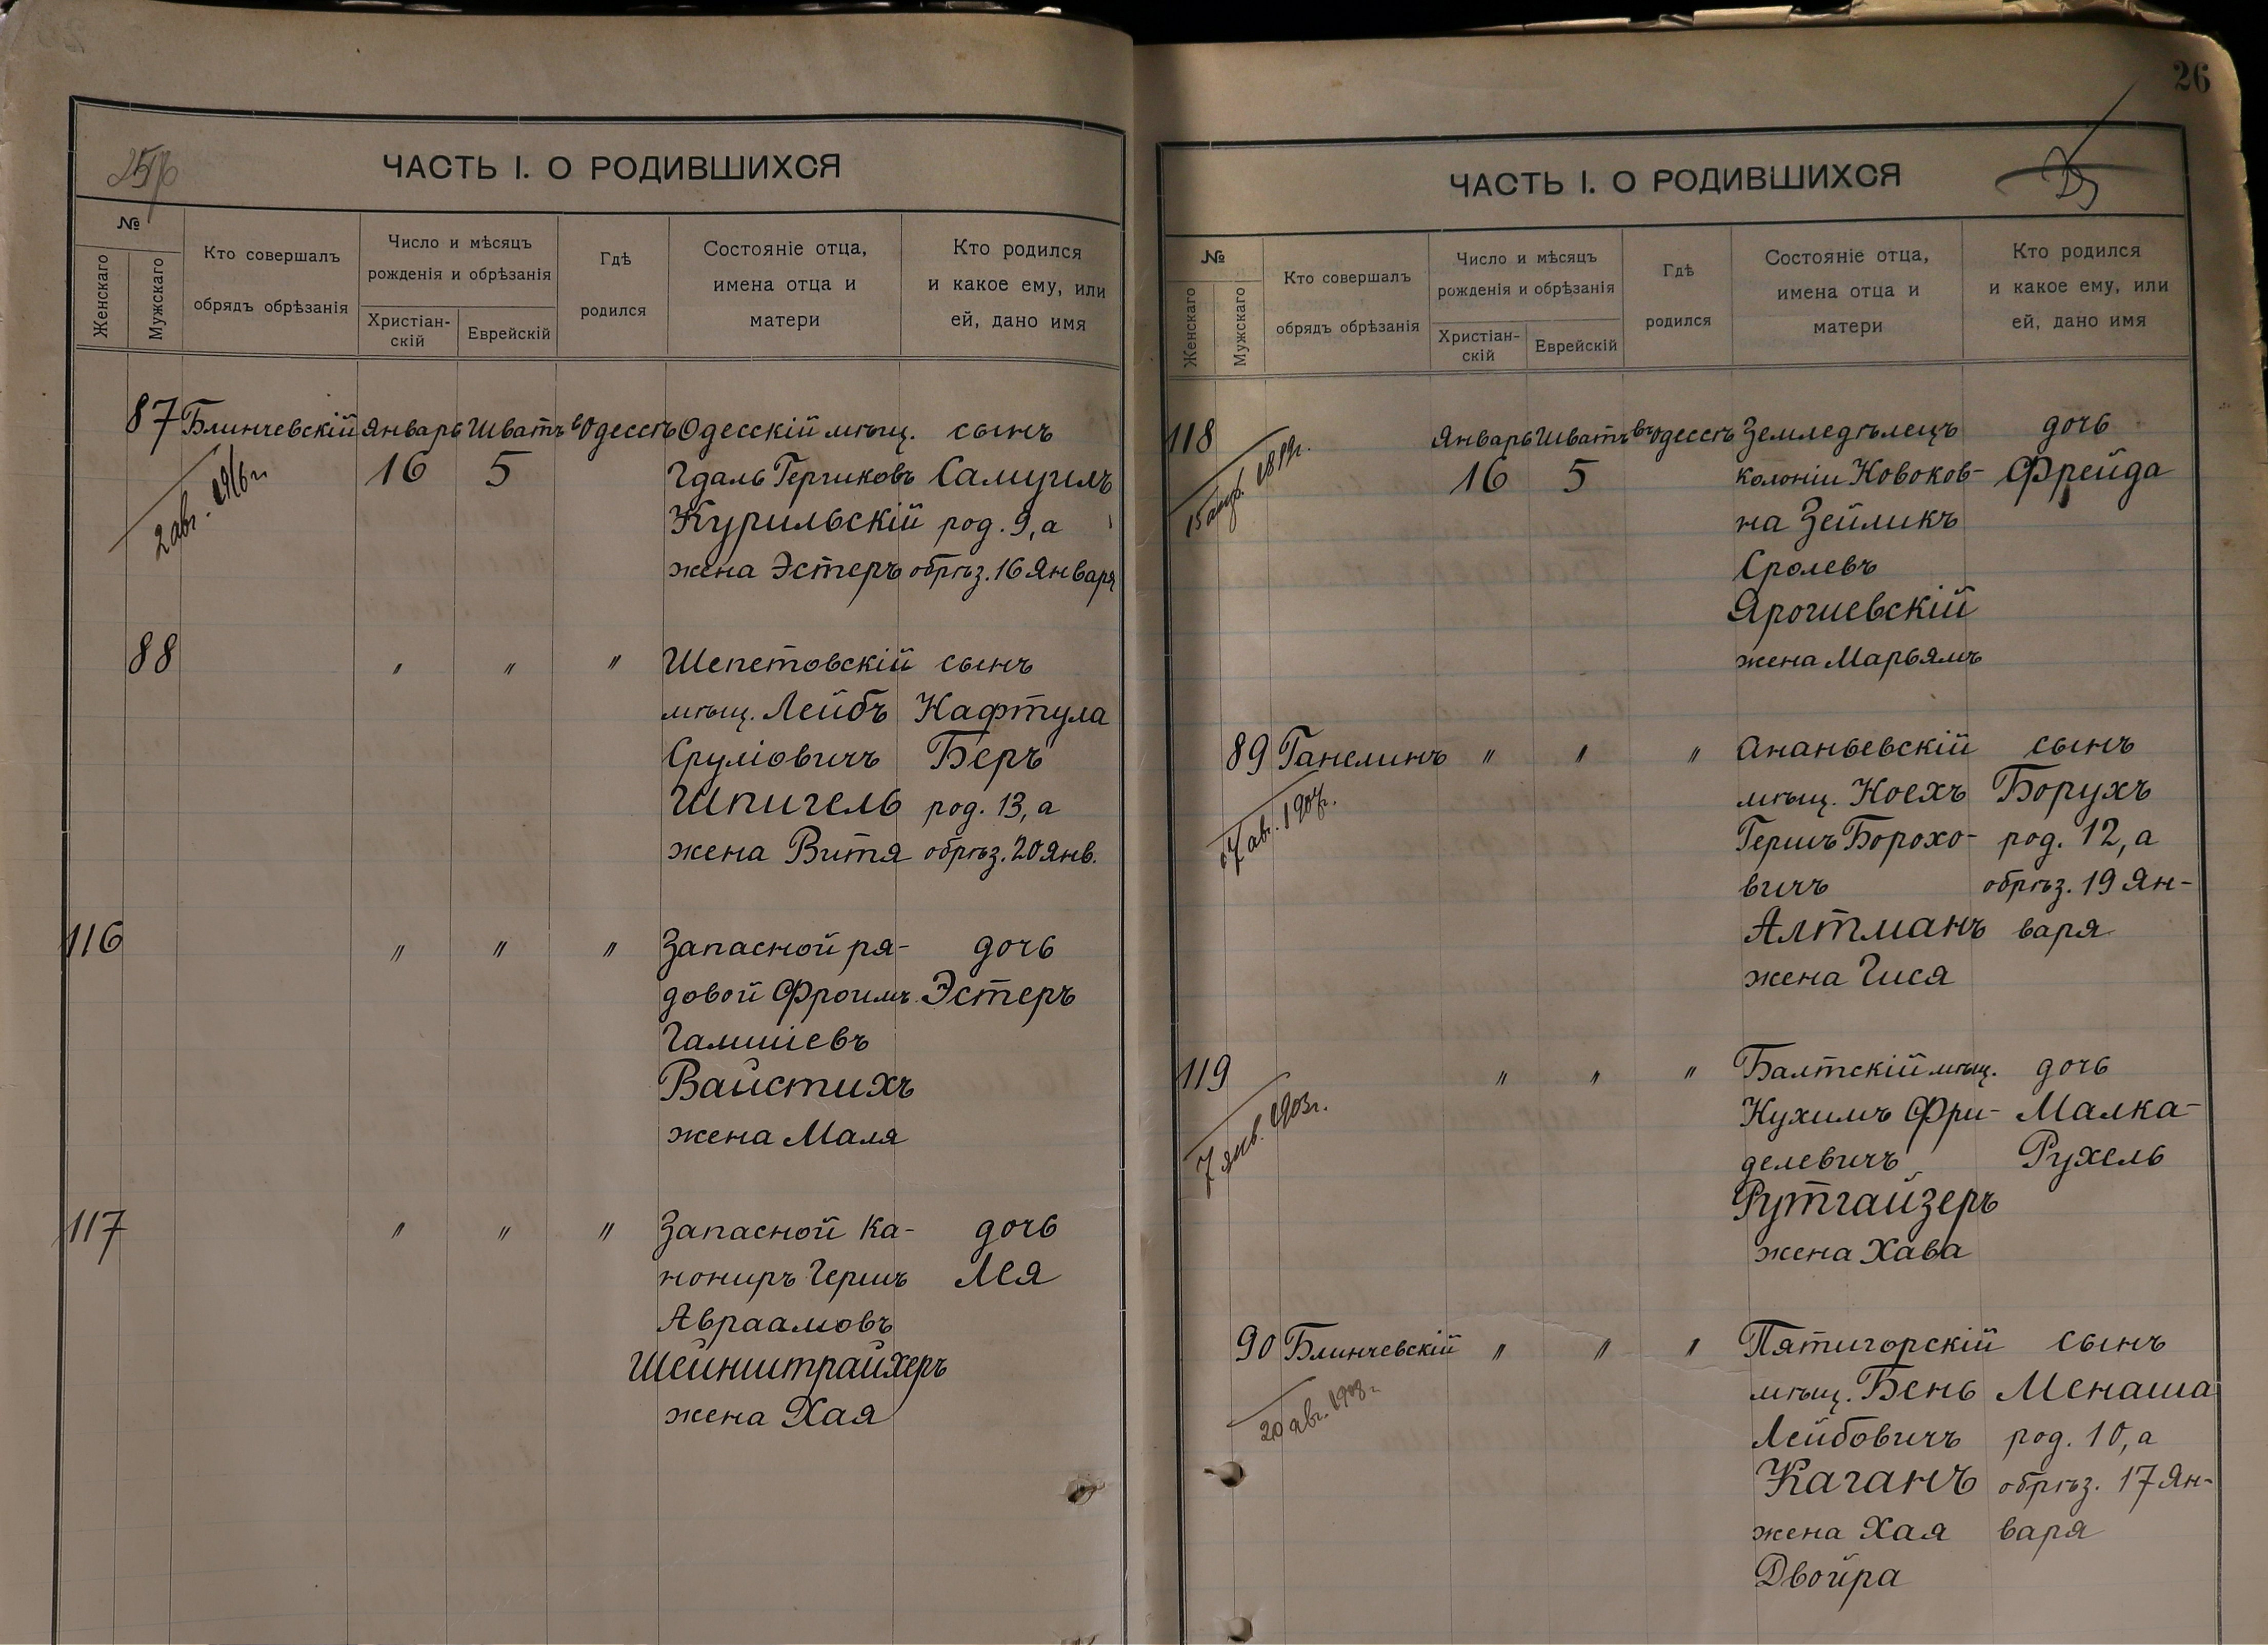 ЧАСТЬ I. О РОДИВШИХСЯ
№
Женскаго
Мужскаго
Кто совершалъ
обрядъ обрѣзанія
Число и мѣсяцъ
рожденія и обрѣзанія
Христіан-
скій
Еврейскій
Гдѣ
родился
Состояніе отца,
имена отца и
матери
Кто родился
и какое ему, или
ей, дано имя
87 Блинчевскій Январь Шватъ въ Одессѣ Одесскій мѣщ. сынъ
2 авг. 1916 г. 16 5 Гдаль Гершковъ Самуилъ
Курильскій род. 9, а
жена Эстеръ обрѣз. 16 Января
88 " " " Шепетовскій сынъ
мѣщ. Лейбъ Нафтула
Сруліовичъ Беръ
Шпигель род. 13, а
жена Витя обрѣз. 20 Янв.
116 " " " Запасной ря- дочь
довой Фроимъ Эстеръ
Гамшіевъ
Вайстихъ
жена Маля
117 " " " Запасной ка- дочь
нониръ Гершъ Лея
Авраамовъ
Шейнштрайхеръ
жена Хая
26
ЧАСТЬ I. О РОДИВШИХСЯ
№
Женскаго
Мужскаго
Кто совершалъ
обрядъ обрѣзанія
Число и мѣсяцъ
рожденія и обрѣзанія
Христіан-
скій
Еврейскій
Гдѣ
родился
Состояніе отца,
имена отца и
матери
Кто родился
и какое ему, или
ей, дано имя
118 Январь Шватъ въ Одессѣ Земледѣлецъ дочь
16 5 колоніи Новоков- Фрейда
на Зейликъ
Сролевъ
Ярошевскій
жена Марьямъ
89 Ганелинъ " " " Ананьевскій сынъ
авг. 1907 г. мѣщ. Ноехъ Борухъ
Гершъ Борохо- род. 12, а
вичъ обрѣз. 19 Ян-
Алтманъ варя
жена Гися
119 " " " Балтскій мѣщ. дочь
7 янв. 1903 г. Нухимъ Фри- Малка-
делевичъ Рухель
Рутгайзеръ
жена Хава
90 Блинчевскій " " " Пятигорскій сынъ
20 авг. 1908 г. мѣщ. Бень Менаша
Лейбовичъ род. 10, а
Каганъ обрѣз. 17 Ян-
жена Хая варя
Двойра